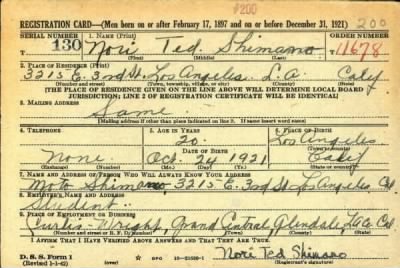 #200
REGISTRATION CARD—(Men born on or after February 17, 1897 and on or before December 31, 1921) 200
SERIAL NUMBER 1. NAME (Print) ORDER NUMBER
130 Nori Ted Shimamo 11678
(First) (Middle) (Last)
2. PLACE OF RESIDENCE (Print)
3215 E. 3rd St. Los Angeles. L.A. Calif
(Number and street) (Town, township, village, or city) (County) (State)
[THE PLACE OF RESIDENCE GIVEN ON THE LINE ABOVE WILL DETERMINE LOCAL BOARD
JURISDICTION; LINE 2 OF REGISTRATION CERTIFICATE WILL BE IDENTICAL]
3. MAILING ADDRESS
Same
[Mailing address if other than place indicated on line 2. If same insert word same]
4. TELEPHONE 5. AGE IN YEARS 6. PLACE OF BIRTH
20 Los Angeles
DATE OF BIRTH (Town or county)
None Oct. 24 1921 Calif
(Exchange) (Number) (Mo.) (Day) (Yr.) (State or country)
7. NAME AND ADDRESS OF PERSON WHO WILL ALWAYS KNOW YOUR ADDRESS
Moto Shimamo, 3215-E. 3rd St. Los Angeles, Cal.
8. EMPLOYER'S NAME AND ADDRESS
Student
9. PLACE OF EMPLOYMENT OR BUSINESS
Curtis-Wright, Grand Central, Glendale, L.A. Co. Cal
(Number and street or R. F. D. number) (Town) (County) (State)
I AFFIRM THAT I HAVE VERIFIED ABOVE ANSWERS AND THAT THEY ARE TRUE.
D. S. S. Form 1 GPO Nori Ted Shimamo
(Registrant's signature)